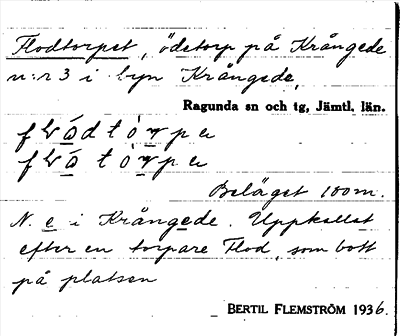 Flodtorpet, ödetorp på Krångede
n:r 3 i byn Krångede,
Ragunda sn och tg, Jämtl. län.
Beläget 100 m.
N. e i Krångede. Uppkallat
efter en torpare Flod, som bott
på platsen
BERTIL FLEMSTRÖM 1936.